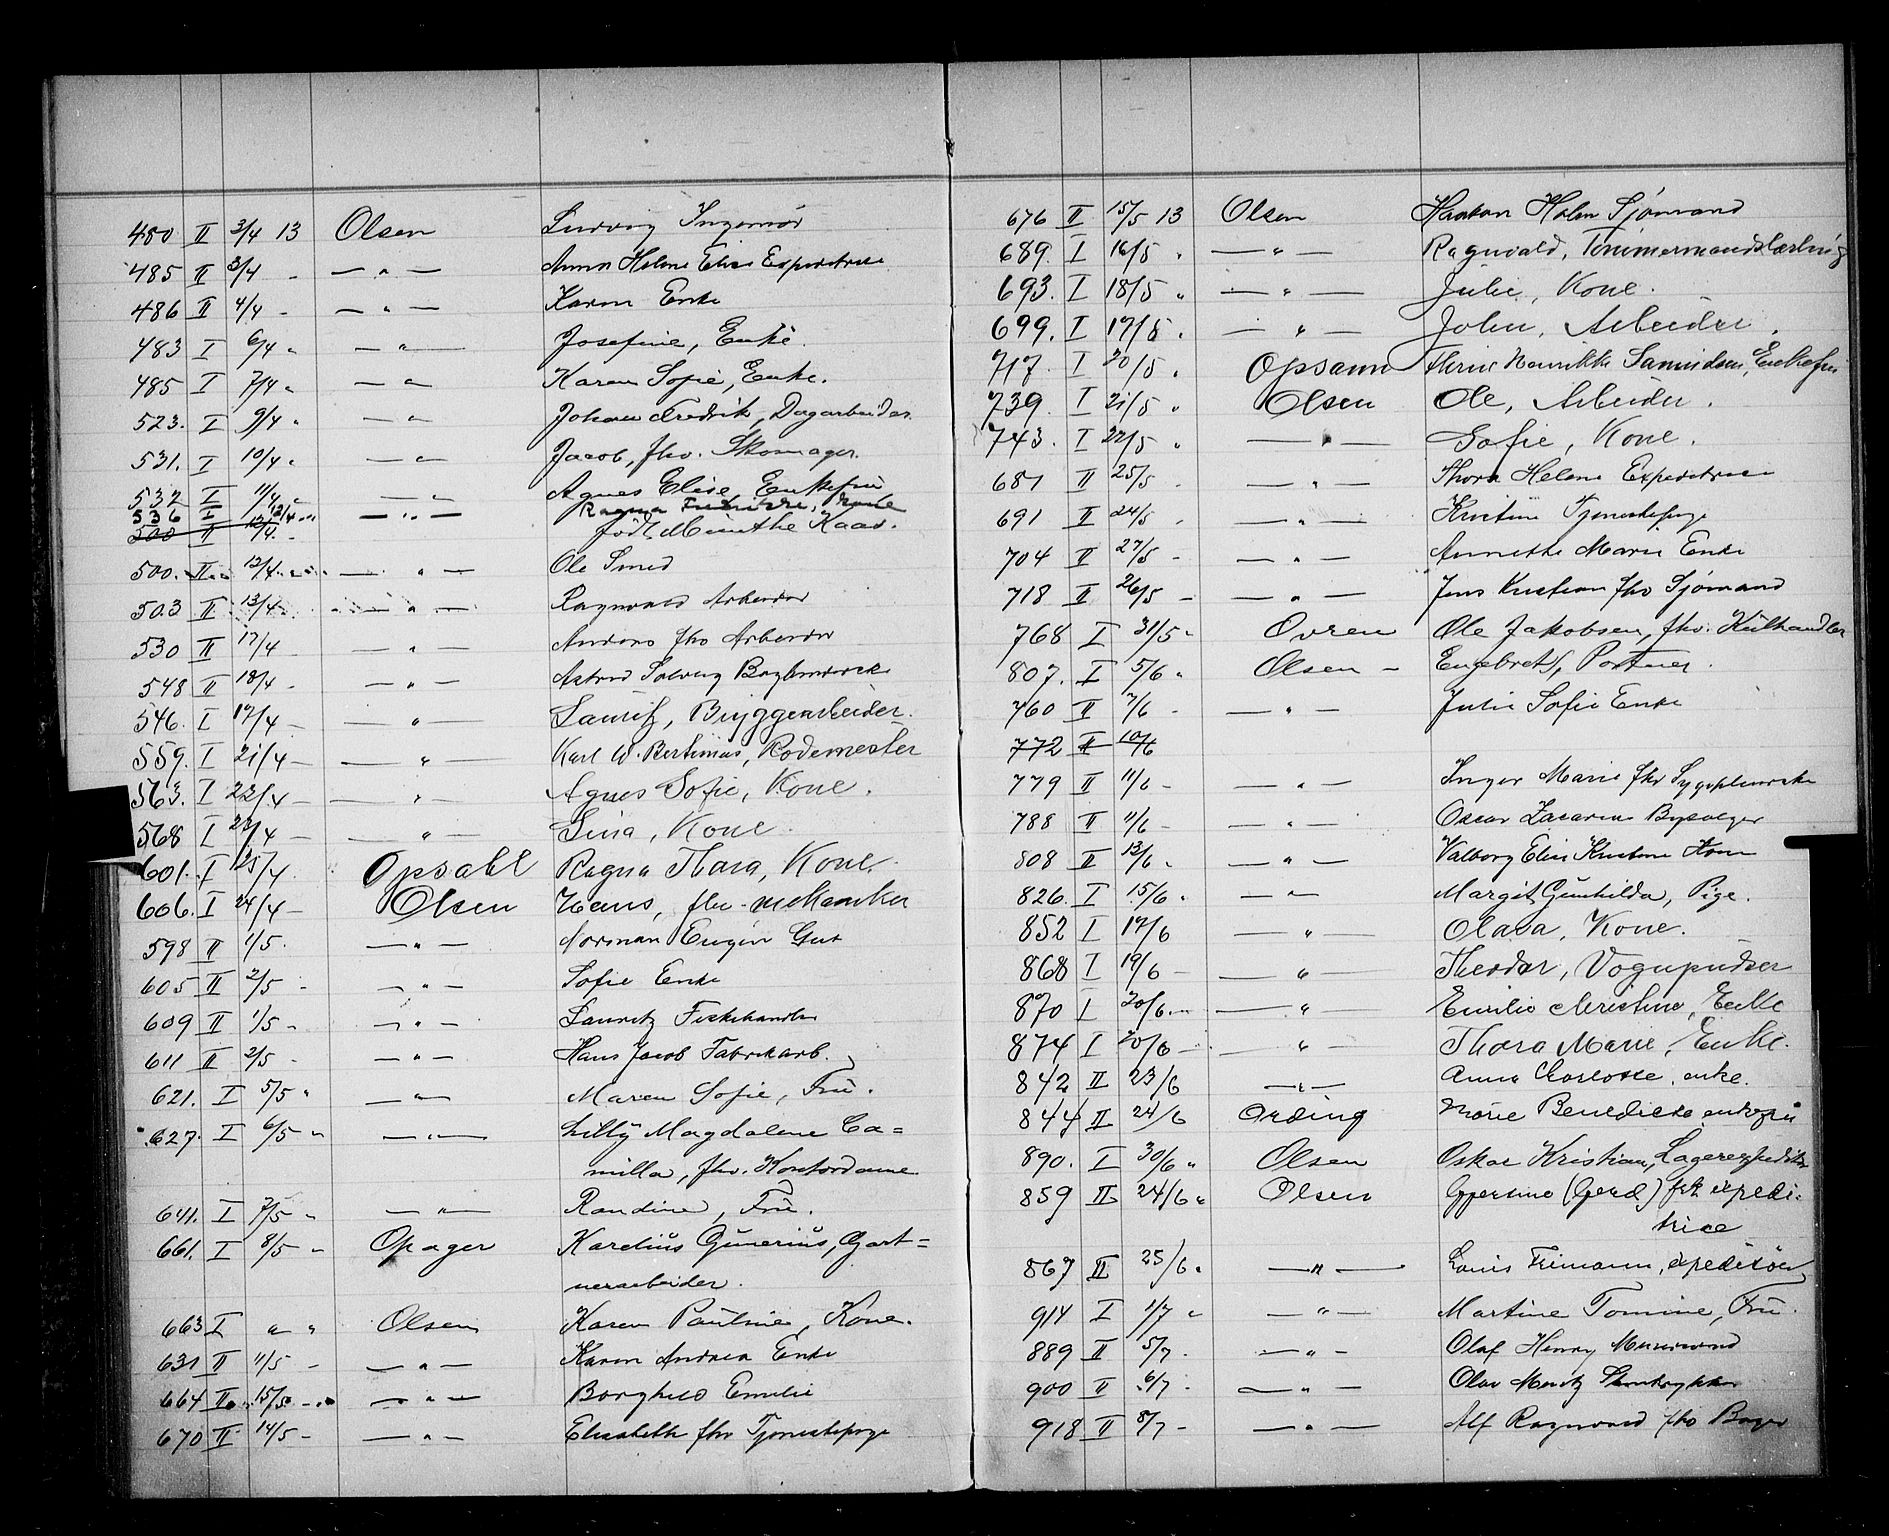 480 II 3/4 13 Olsen Ludvig Ingeniør
485 II 3/4 - — " — Anna Helene Elise Expeditrice
486 II 4/4 - — " — Karen Enke
483 I 6/4 " — " — Josefine, Enke.
485 I 7/4 " — " — Karen Sofie, Enke.
523. I 9/4 " — " — Johan Fredrik, Dagarbeider
531. I 10/4 " — " — Jacob, fhv. Skomager.
532 I 11/4 " — " — Agnes Elise Enkefru
536 I 12/4 " — " — Ragna Fredrikke, Kone
500 II 12/4 - født Munthe Kaas.
500. II 12/4 — " — Ole Smed
503 II 13/4 — " — Ragnvald Arbeider
530 II 17/4 — " — Anders fhv Arbeider
548 II 18/4 - — " — Astrid Solveig
546. I 17/4 — — " — Lauritz, Bryggearbeider.
559. I 21/4 — — " — Karl W. Bertinius, Rodemester
563. I 22/4 — — " — Agnes Sofie, Kone.
568 I 23/4 — — " — Lina, Kone.
601. I 25/4 Opsahl Ragna Thora, Kone.
606. I 24/4 — Olsen Hans, fhv. mekaniker
598 II 1/5. — " — Norman Eugen Gut
605 II 2/5 - — " — Sofie Enke
609 II 1/5 - — " — Lauritz Fiskehandler
611 II 2/5 - — " — Hans Jacob Fabrikarb.
621. I 5/5 " — " — Maren Sofie, Fru.
627. I 6/5 " — " — Lilly Magdalene Ca=
milla, fhv. Kontordame
641. I 7/5 " — " — Randine, Fru.
661. I 8/5 " Opager Karelius Gunerius, Gart=
nerarbeider.
663 I " " Olsen Karen Pauline, Kone.
631 II 11/5 - — " — Karen Andrea Enke
664 II 15/5 — " — Borghild Emilie
670 II 14/5 - — " — Elisabeth fhv Tjenestepige
676 II 15/5 13 Olsen Haakon Holm Sjømand
689. I 16/5 " — " — Ragnvald, Tømmermandslærling
693. I 18/5 " — " — Julie, Kone.
699. I 17/5 " — " — John, Arbeider.
717. I 20/5 " Opsann Henrikke Enkefru
739. I 21/5 " Olsen Ole, Arbeider.
743. I 22/5 " — " — Sofie, Kone.
681 II 25/5 - — " — Thora Helene Expeditrice
691 II 24/5 - — " — Kristine Tjenestepige
704 II 27/5 - — " — Annette Marie Enke
718 II 26/5 - — " — Jens Kristian fhv Sjømand
768 I 31/5 " Ovren Ole Jakobsen, fhv. Kulhandler
807. I 5/6 " Olsen — Engebret, Portner.
760 II 7/6 - — " — Julie Sofie Enke
772 II 10/6
779 II 11/6 - — " — Inger Marie fhv Sygepleierske
788 II 11/6 - — " — Oscar Zacarias Bysvager
808 II 13/6 " — " — Valborg Elise Kristine Kone
826. I 15/6 " — " — Margit Gunhilda, Pige.
852 I 17/6 — " — Olava, Kone.
868 I 19/6 — — " — Theodor, Vognpudser
870 I 20/6 — — " — Emilie Christine, Enke
874 I 20/6 — — " — Thora Marie, Enke.
842 II 23/6 — " — Anna Charlotte, enke.
844 II 24/6 Ording Marie Benedicte enkefru
890. I 30/6 " Olsen Oskar Kristian, Lagerexpeditør
859 II 24/6 " Olsen Gjertine (Gerd) frk expedi-
trice
867 II 25/6 " — " — Louis Freimann, expeditør
914 I 1/7 " — " — Martine Tomine, Fru.
889 II 5/7 - — " — Olaf Henry Murersvend
900 II 6/7 - — " — Olav Moritz Stentrykker
918 II 8/7 - — " — Alf Ragnvald fhv Bager